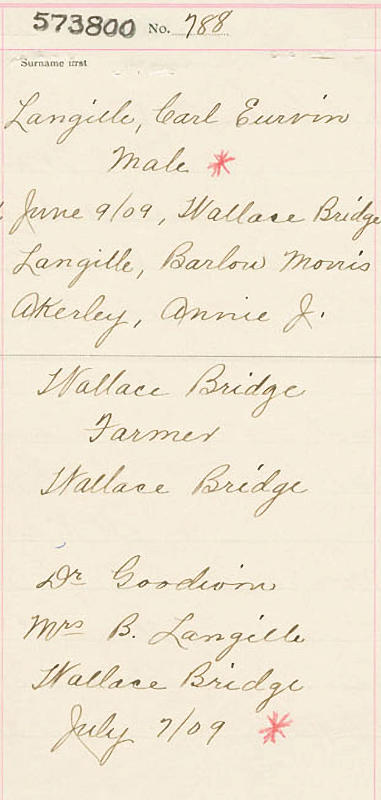 573800 No. 788
Surname first
Langille, Carl Eurvin
Male *
June 9/09, Wallace Bridge
Langille, Barlow Morris
Akerley, Annie J.
Wallace Bridge
Farmer
Wallace Bridge
Dr Goodwin
Mrs B. Langille
Wallace Bridge
July 7/09 *